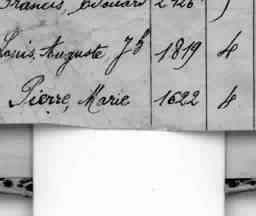 Francis, Edouard 2126
Louis, Auguste Jh 1819 4
Pierre, Marie 1622 4